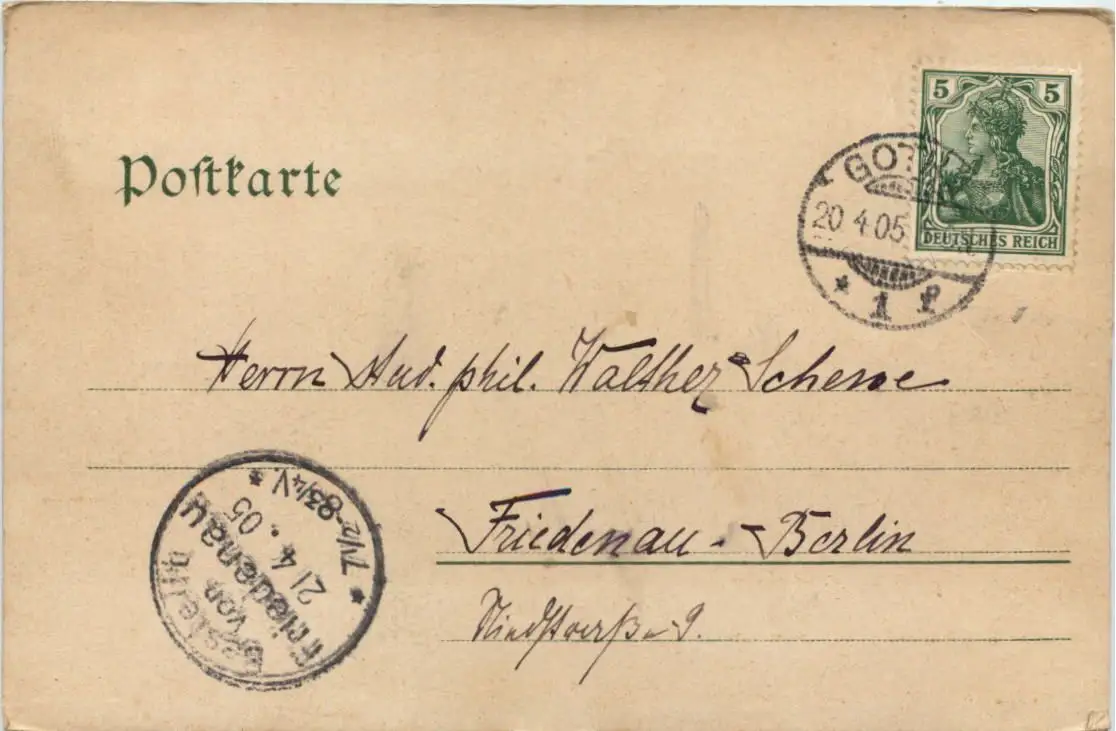 Postkarte
5 5
DEUTSCHES REICH
GOTHA
20 4.05
* 1 f
Herrn stud. phil. Walther
Friedenau-Berlin
9.
Bestellt
vom
Friedenau
21 4. 05
* 7 1/2-8 3/4 V. *